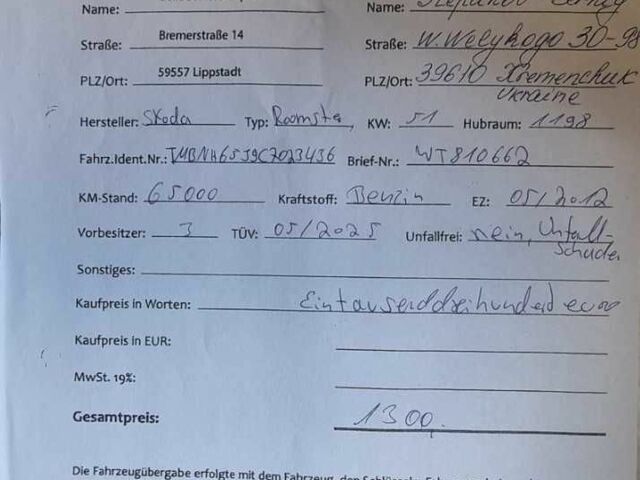 Name: Name:
Straße: Bremerstraße 14 Straße: W. Welykogo 30-98
PLZ/Ort: 59557 Lippstadt PLZ/Ort: 39610 Kremenchuk
Ukraine
Hersteller: Skoda Typ: Roomster, KW: 51 Hubraum: 1198
Fahrz.Ident.Nr.: TMBNH65J9C7023436 Brief-Nr.: WT810662
KM-Stand: 65000 Kraftstoff: Benzin EZ: 05/2012
Vorbesitzer: 3 TÜV: 05/2025 Unfallfrei: nein, Unfall-
schaden
Sonstiges:
Kaufpreis in Worten: Eintausenddreihundert euro
Kaufpreis in EUR:
MwSt. 19%:
Gesamtpreis: 1300,
Die Fahrzeugübergabe erfolgte mit dem Fahrzeug, den